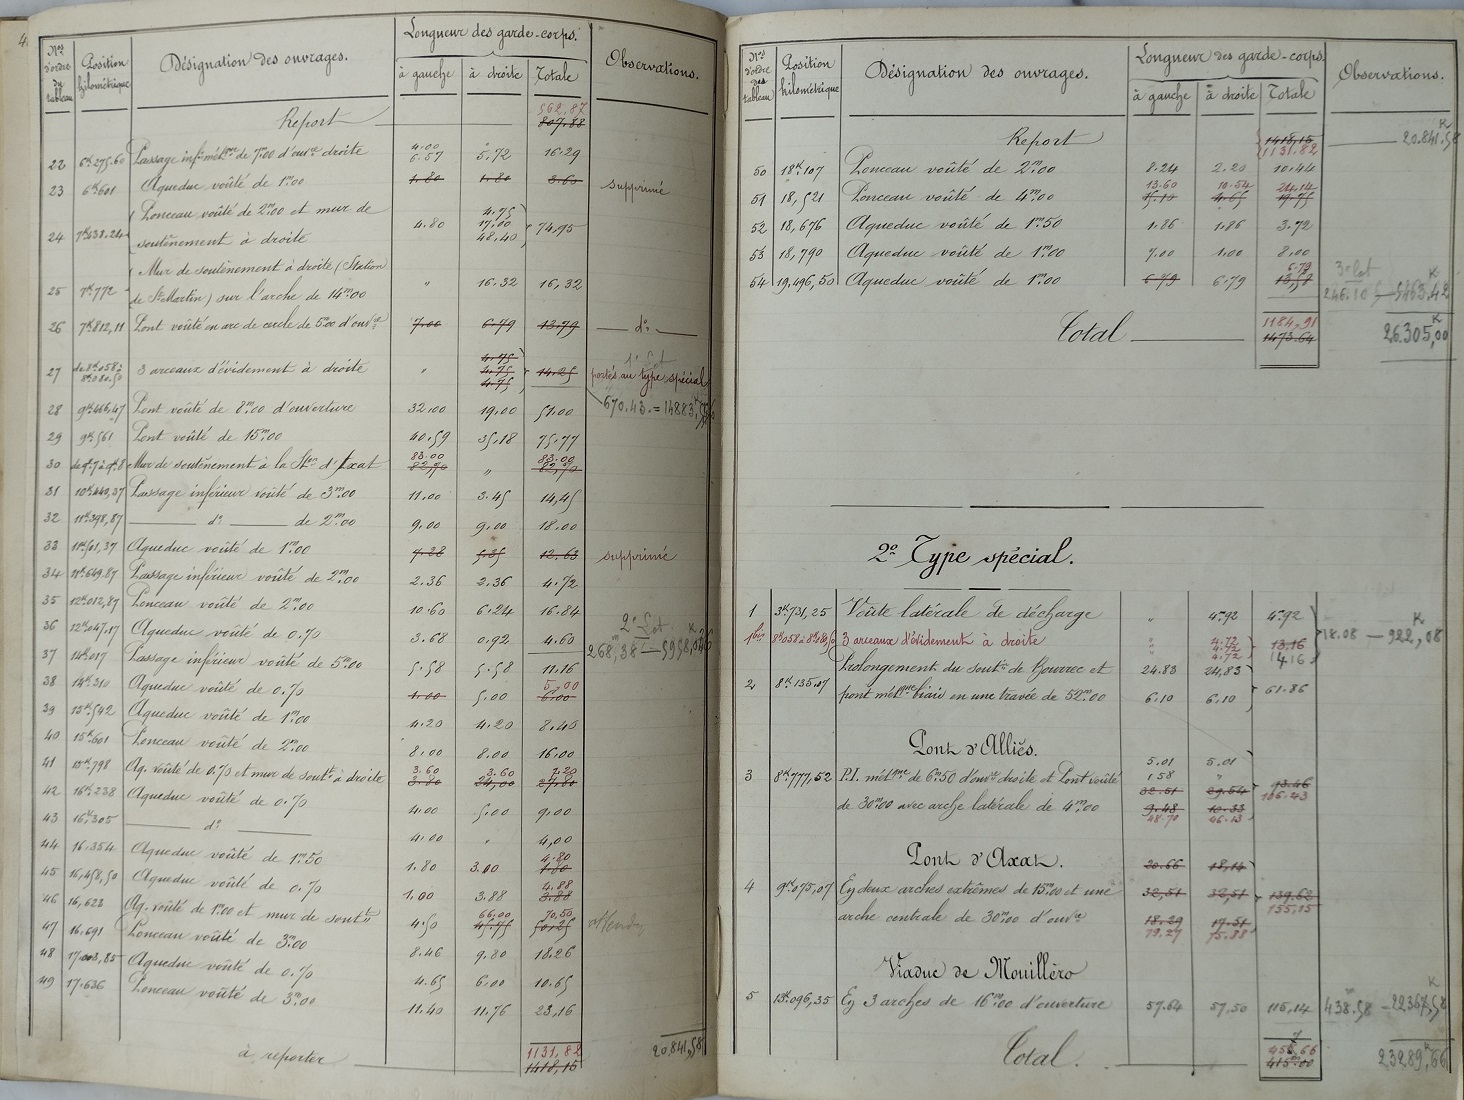 Nos d'ordre du tableau | Position kilométrique | Désignation des ouvrages. | Longueur des garde-corps. | Observations.
à gauche | à droite | Totale
562,87
Report 807.88
22 6k275.60 Passage infr métque de 7m00 d'ouvre droite 4.00 6.57 " 5.72 16.29
23 6k601 Aqueduc voûté de 1m00 1.80 1.80 3.60 supprimé
24 7k638.24 Ponceau voûté de 2m00 et mur de soutènement à droite 4.80 4.75 17.00 48.40 74,95
25 7k772 Mur de soutènement à droite (Station de St Martin) sur l'arche de 14m00 " 16.32 16,32
26 7k812,11 Pont voûté en arc de cercle de 5m00 d'ouvre 7.00 6.79 13.79 do
27 de 8k058 à 8k080.50 3 arceaux d'évidement à droite " 4.75 4.75 4.75 14.25 1er Lot portés au type spécial
28 9k466,47 Pont voûté de 8m00 d'ouverture 32.00 19.00 51.00 670.43 = 14883,
29 9k561 Pont voûté de 15m00 40.59 35.18 75.77
30 de 9k7 à 9k8 Mur de soutènement à laSton d'Axat 83.00 82,70 " 83.00 82,70
31 10k440,37 Passage inférieur voûté de 3m00 11.00 3.45 14,45
32 11k398,87 do de 2m00 9.00 9.00 18.00
33 11k501,37 Aqueduc voûté de 1m00 7.28 5.35 12.63 supprimé
34 11k649.87 Passage inférieur voûté de 2m00 2.36 2.36 4.72
35 12k012,87 Ponceau voûté de 2m00 10.60 6.24 16.84
36 12k047.17 Aqueduc voûté de 0.70 3.68 0.92 4.60 2e Lot 268,38
37 14k017 Passage inférieur voûté de 5m00 5.58 5.58 11.16
38 14k310 Aqueduc voûté de 0.70 1.00 5.00 5,00 6.00
39 15k542 Aqueduc voûté de 1m00 4.20 4.20 8.40
40 15k601 Ponceau voûté de 2m00 8.00 8.00 16.00
41 15k798 Aq. voûté de 0.70 et mur de soutt à droite 3.60 3.80 3.60 24,00 7.20 27,80
42 16k238 Aqueduc voûté de 0.70 4.00 5.00 9.00
43 16k305 do 4.00 " 4,00
44 16.354 Aqueduc voûté de 1m50 1.80 3.00 4.80 1.80
45 16,458,50 Aqueduc voûté de 0.70 1.00 3.88 4.88 3.88
46 16,623 Aq. voûté de 1m00 et mur de soutt 4.50 66,00 45.75 70,50 50,25
47 16.691 Ponceau voûté de 3m00 8.46 9.80 18.26
48 17.003,85 Aqueduc voûté de 0.70 4.65 6.00 10.65
49 17.636 Ponceau voûté de 3m00 11.40 11.76 23,16
à reporter 1131,82 1418,15 20.841,58
Nos d'ordre des tableau | Position kilométrique | Désignation des ouvrages. | Longueur des garde-corps. | Observations.
à gauche | à droite | Totale
Report 1418,15 1131.82 20.841,58
50 18k107 Ponceau voûté de 2m00 8.24 2.20 10.44
51 18,521 Ponceau voûté de 4m00 13.60 15.10 10.54 4.65 24,14 19,75
52 18,676 Aqueduc voûté de 1m50 1.86 1.86 3.72
53 18,790 Aqueduc voûté de 1m00 7.00 1.00 8.00
54 19,496,50 Aqueduc voûté de 1m00 6.79 6.79 6.79 13,58 3e Lot 246.10 5463.42
Total 1184,91 1473.64 26.305,00
2o Type spécial.
1 3k731,25 Voûte latérale de décharge " 4m92 4m92
1bis 8k058 à 8k080,50 3 arceaux d'évidement à droite " 4.72 4.72 4.72 13,16 14.16 18.08 — 922,08
2 8k135.07 Prolongement du soutt de Gourrec et 24.83 24,83
pont métque biais en une travée de 52m00 6.10 6.10 61.86
Pont d'Alliès.
3 8k777,52 P.I. métque de 6m50 d'ouvre droite et Pont voûté 5.01 1.58 5.01 "
de 30m00 avec arche latérale de 4m00 32.51 9.48 48.70 29.54 10.33 46.13 93.46 106.43
Pont d'Axat.
4 9k075,07 En deux arches extrêmes de 15m00 et une 20.66 18,14
arche centrale de 30m00 d'ouvre 32,51 18.29 79.27 32,51 17.51 75.88 139.62 155,15
Viaduc de Mouilléro
5 13k096,35 En 3 arches de 16m00 d'ouverture 57.64 57,50 115,14 438.58 — 22367,58
Total. 415.00 23289,66